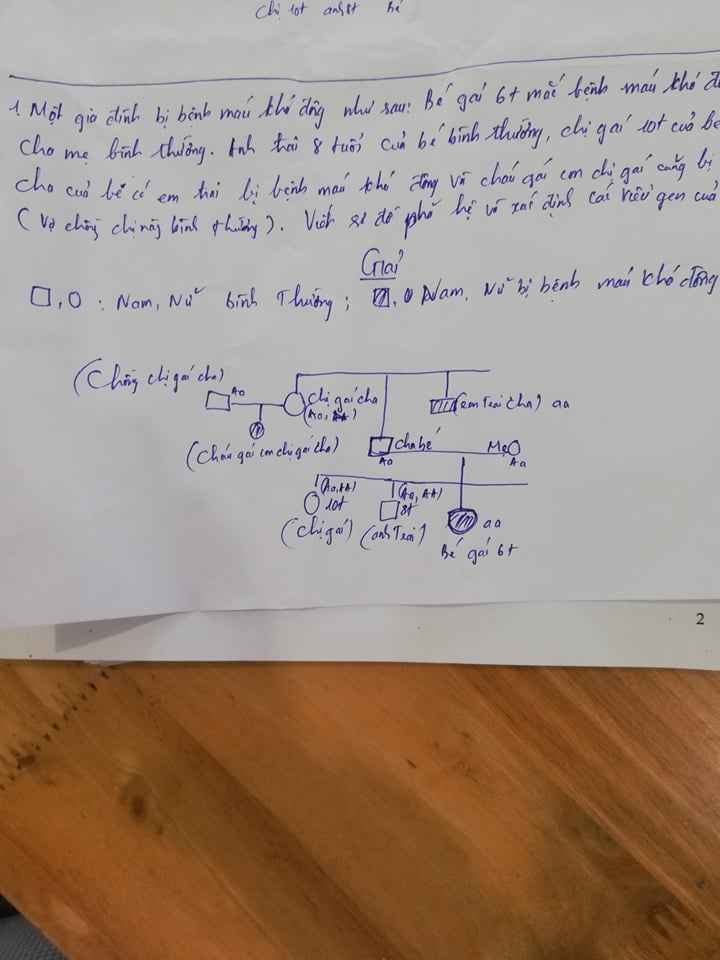 Chị 10t anh 8t Bé
1. Một gia đình bị bệnh máu khó đông như sau: Bé gái 6t mắc bệnh máu khó
Cha mẹ bình thường. Anh trai 8 tuổi của bé bình thường, chị gái 10t của bé
cha của bé có em trai bị bệnh máu khó đông và cháu gái con chị gái cũng bị
(Vợ chồng chị này bình thường). Viết sơ đồ phả hệ và xác định các kiểu gen của
Giải
, : Nam, Nữ bình Thường; , Nam, Nữ bị bệnh máu khó đông
(Chồng chị gái cha) Aa
chị gái cha
(Aa, )
(em trai cha) aa
(Cháu gái con chị gái cha)
cha bé Mẹ
Aa Aa
(Aa, AA) (Aa, AA)
10t 8t
(chị gái) (anh Trai) aa
Bé gái 6t
2